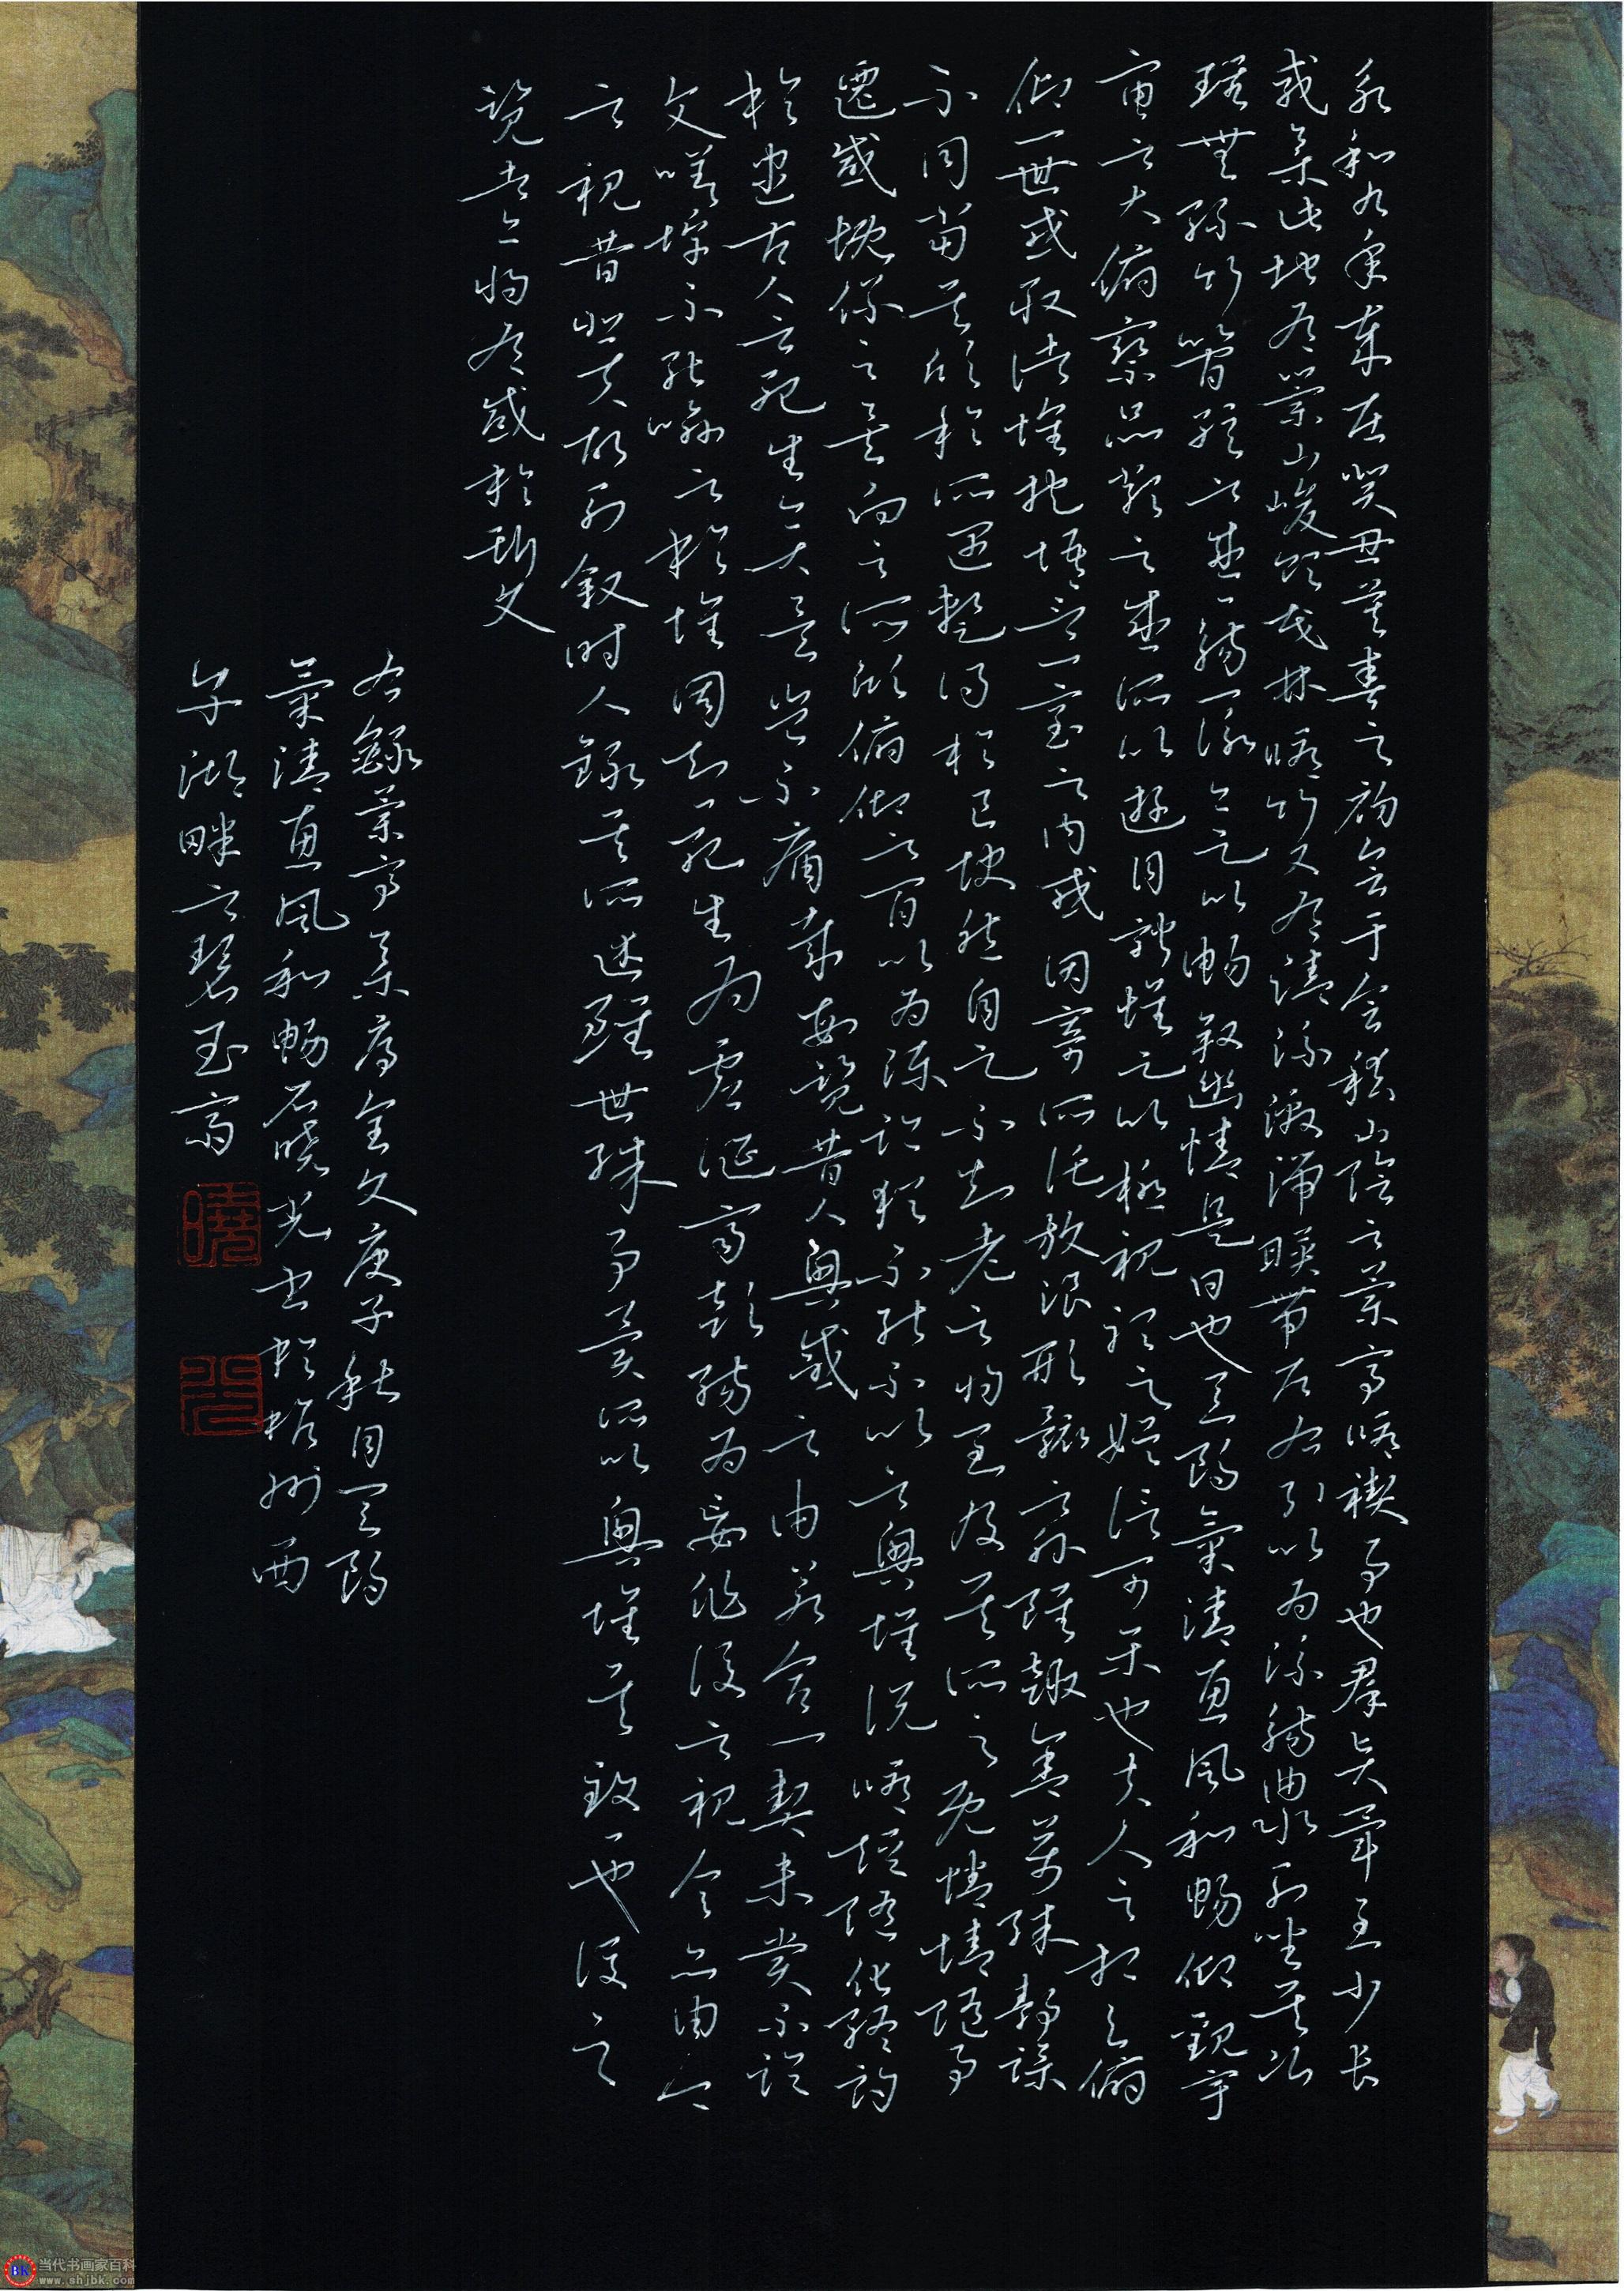 永和九年歲在癸丑暮春之初會于會稽山陰之蘭亭脩禊事也羣賢畢至少長
咸集此地有崇山峻領茂林脩竹又有清流激湍暎帶左右引以為流觴曲水列坐其次
雖無絲竹管弦之盛一觴一詠亦足以暢敘幽情是日也天朗氣清惠風和暢仰觀宇
宙之大俯察品類之盛所以遊目騁懷足以極視聽之娛信可樂也夫人之相與俯
仰一世或取諸懷抱悟言一室之內或因寄所託放浪形骸之外雖趣舍萬殊靜躁
不同當其欣於所遇暫得於己快然自足不知老之將至及其所之既惓情隨事
遷感慨係之矣向之所欣俯仰之間以為陳跡猶不能不以之興懷況脩短隨化終期
於盡古人云死生亦大矣豈不痛哉每覽昔人興感之由若合一契未嘗不臨
文嗟悼不能喻之於懷固知一死生為虛誕齊彭殤為妄作後之視今亦由今
之視昔悲夫故列敘時人錄其所述雖世殊事異所以興懷其致一也後之
覽者亦將有感於斯文
右錄蘭亭集序全文庚子秋月天朗
氣清惠風和暢石曉光書於蘄州西
午湖畔之碧玉齋
曉
光
BK 当代书画家百科
www.shjbk.com